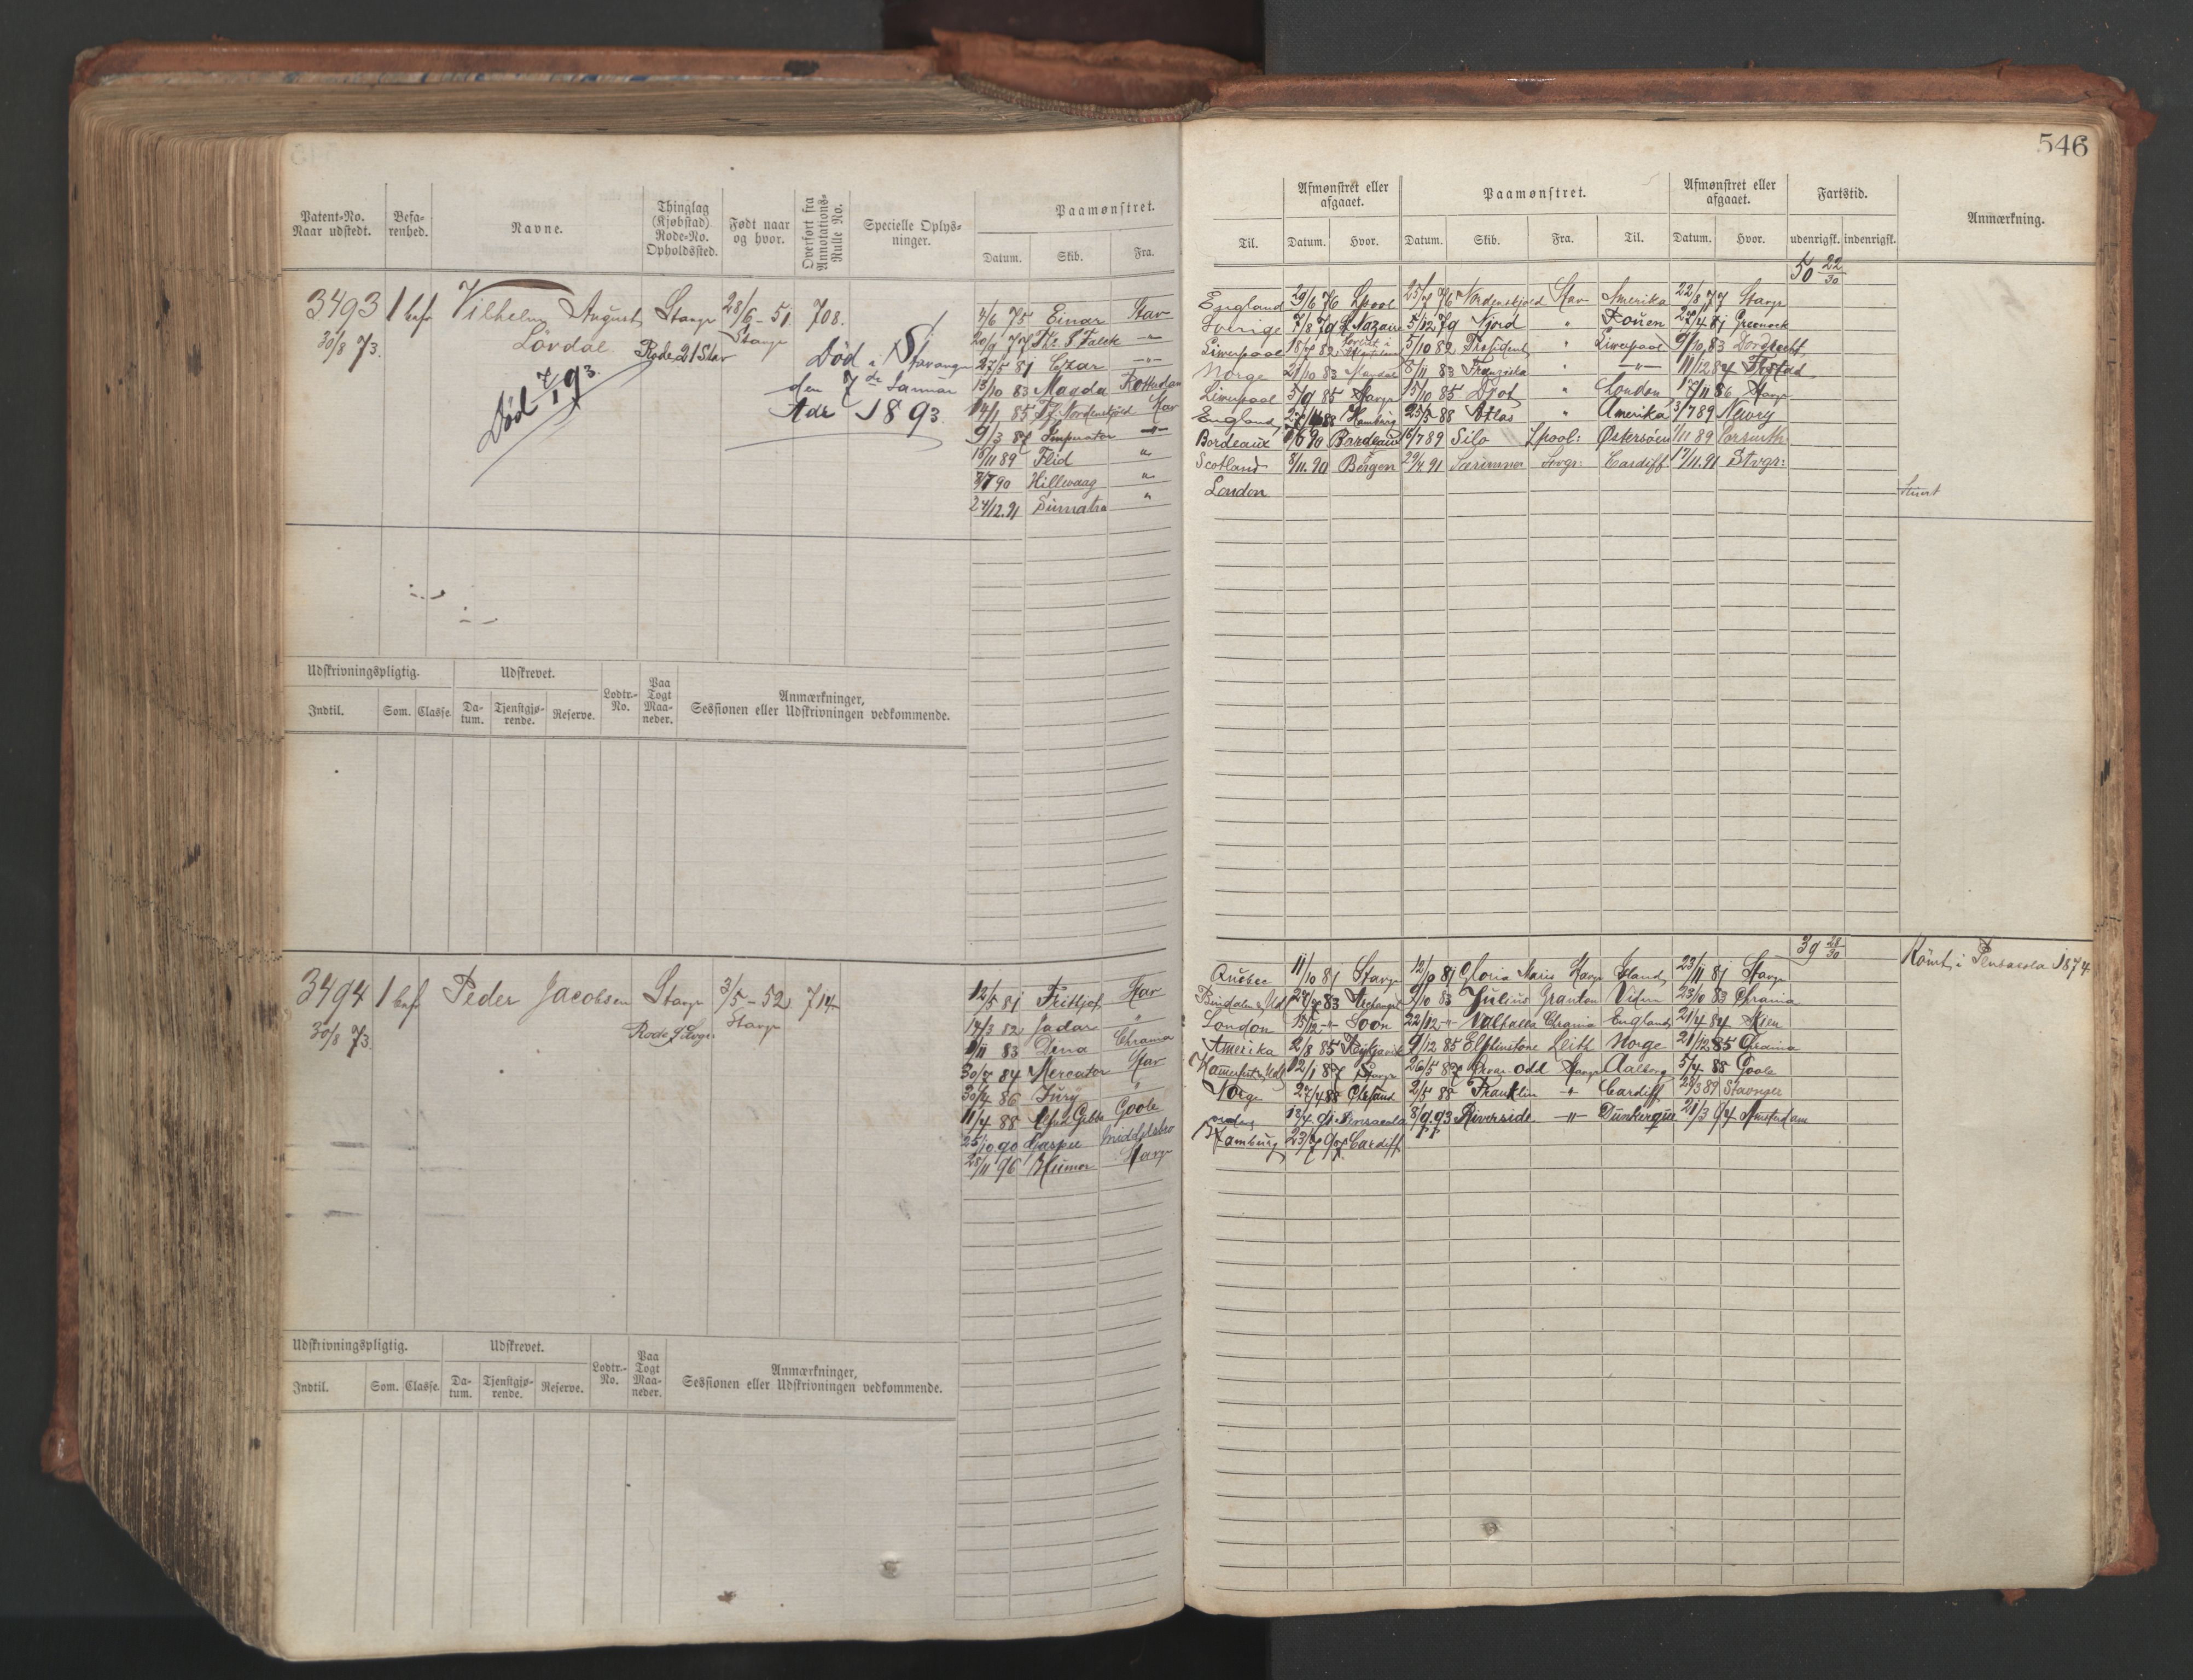 546
Patent-No. Naar udstedt.
Befa-renhed.
Navne.
Thinglag (Kjøbstad). Rode-No. Opholdssted.
Født naar og hvor.
Overført fra Annotations-Rulle No.
Specielle Oplys-ninger.
Paamønstret.
Datum. Skib. Fra.
Til.
Afmønstret eller afgaaet.
Datum. Hvor.
Paamønstret.
Datum. Skib. Fra. Til.
Afmønstret eller afgaaet.
Datum. Hvor.
Fartstid.
udenrigsk. indenrigsk.
Anmærkning.
50 22/30
3493 1 bef Vilhelm August Stavgr 28/6-51 708.
30/8 73. Lövdal Rode 21 Stav Stavgr
Død 7/1 93.
Død i Stavanger
den 7de Januar
Adr 1893.
4/6 75 Einar Stav England 29/6 76 Lpool 25/7 76 Nordenskjold Stav Amerika 22/8 77 Stavgr
Sverige 7/8 79 St Nazaire 5/12 79 Njord " Rouen Greenock
27/5 81 Czar Liverpool 18/7 82 5/10 82 President " Liverpool 9/10 83 Dordrecht
13/10 83 Magda Rotterdam Norge 21/10 83 Mandal 8/11 83 Franziska " 11/12 84 Frstad
14/1 85 Stav Liverpool 5/9 85 Stavgr 15/10 85 Djot " London 17/11 86 Stavgr
9/3 87 Imperator England Hamburg 25/5 88 Atlas " Amerika 3/7 89 Newry
15/11 89 Flid " Bordeaux Bordeaux 16/7 89 Silo Lpool: Østersøen 1/11 89
3/7 90 Hillevaag " Scotland 8/11. 90 Bergen 29/4 91 Særimner Svgr: Cardiff 17/11. 91 Stvgr:
24/12. 91 Sumatra " London
Udskrivningspligtig. Udskrevet.
Indtil. Som. Classe. Da-tum. Tjenstgjø-rende. Reserve. Lodtr.-No. Paa Togt Maa-neder.
Anmærkninger, Sessionen eller Udskrivningen vedkommende.
39 28/30
Römt i Pensacola 1874
3494 1 bef Peder Jacobsen Stavgr 3/5-52 714
30/8 73. Rode 9 Svgr: Stavgr
12/5 81 Frithjof Stav Quebec 11/10 81 Stavgr 12/10 81 Gloria Maris Stavgr Island 23/11 81 Stavgr
14/3 82 Jadar " 83 Archangel 9/10 83 Julius Granton Vidun 23/10 83 Chrania
9/11 83 Dena Chrania London 15/12 -"- Soon 22/12 -"- Valhalla Chrania England 21/4 84 Skien
30/7 84 Mercator Stav Amerika 2/8 85 Reykjavik 9/12 85 Elphinstone Leith Norge 21/12 85 Chrania
30/4 86 Fury " 12/1 87 Stavgr 26/5 87 Ørvar Odd Stavgr Aalborg 5/4 88 Goole
11/4 88 Goole Norge 27/4 88 2/5 88 Franklin -"- Cardiff 28/3 89 Stavanger
25/10 90 Caspee Middelsbro 13/4 91 Pensacola 8/9. 93 Riverside -"- Dunkerque 21/3 94 Amsterdam
28/11 96 Humor Stavgr Hamburg 23/7 97 Cardiff
Udskrivningspligtig. Udskrevet.
Indtil. Som. Classe. Da-tum. Tjenstgjø-rende. Reserve. Lodtr.-No. Paa Togt Maa-neder.
Anmærkninger, Sessionen eller Udskrivningen vedkommende.